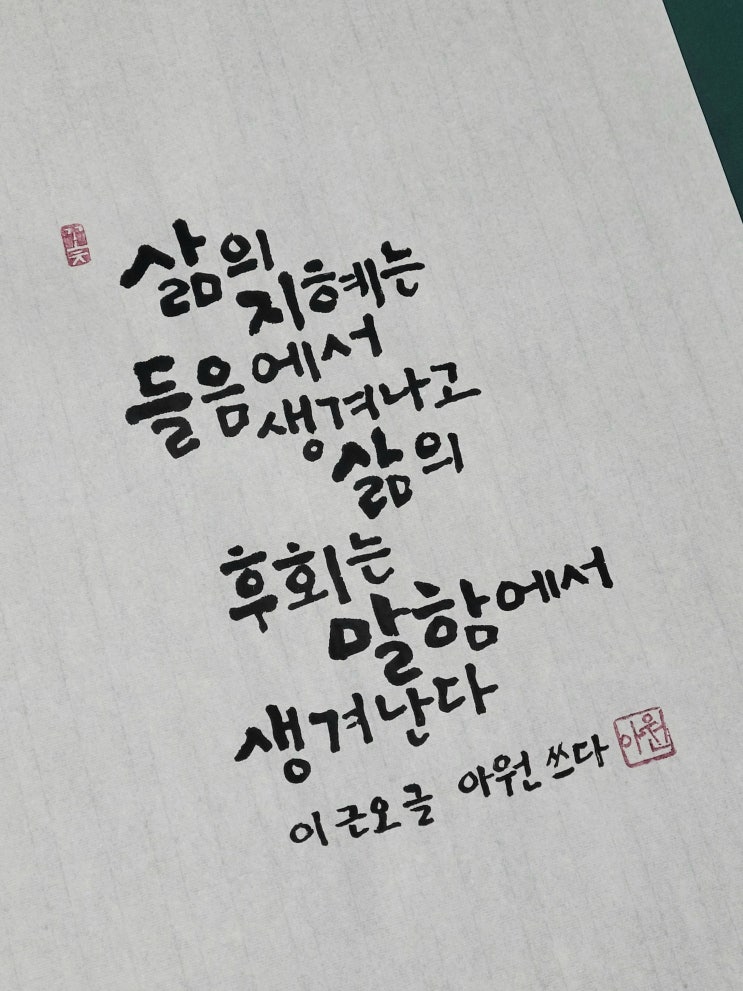 삶의
지혜는
들음에서
생겨나고
삶의
후회는
말함에서
생겨난다
이근오 글 아원 쓰다
아원